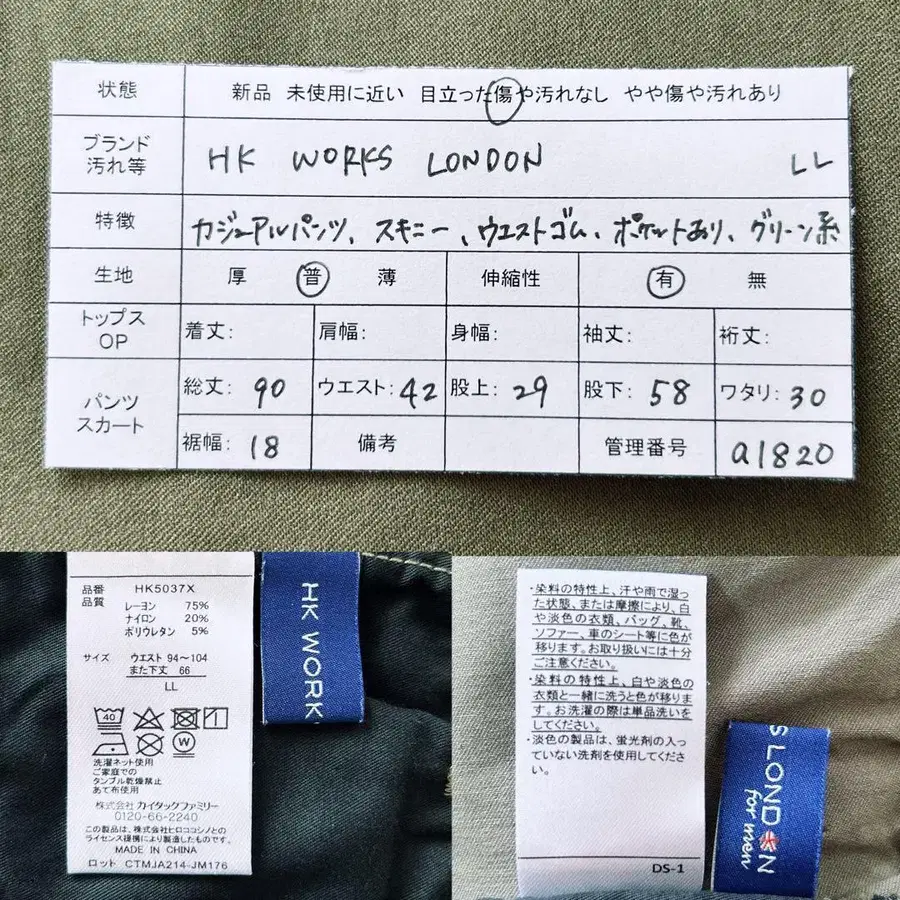 状態 新品 未使用に近い 目立った傷や汚れなし やや傷や汚れあり
ブランド
汚れ等 HK WORKS LONDON LL
特徴 カジュアルパンツ、スキニー、ウエストゴム、ポケットあり、グリーン系
生地 厚 普 薄 伸縮性 有 無
トップス
OP 着丈: 肩幅: 身幅: 袖丈: 裄丈:
パンツ
スカート 総丈: 90 ウエスト: 42 股上: 29 股下: 58 ワタリ: 30
裾幅: 18 備考 管理番号 a1820
品番 HK5037X
品質 レーヨン 75%
ナイロン 20%
ポリウレタン 5%
サイズ ウエスト 94〜104
また下丈 66
LL
40
W
洗濯ネット使用
ご家庭での
タンブル乾燥禁止
あて布使用
株式会社 カイタックファミリー
0120-66-2240
この製品は、株式会社ヒロココシノとの
ライセンス提携により製造したものです。
MADE IN CHINA
ロット CTMJA214-JM176
HK WORK
・染料の特性上、汗や雨で湿っ
た状態、または摩擦により、白
や淡色の衣類、バッグ、靴、
ソファー、車のシート等に色が
移ります。お取り扱いには十分
ご注意ください。
・染料の特性上、白や淡色の
衣類と一緒に洗うと色が移りま
す。お洗濯の際は単品洗いを
してください。
・淡色の製品は、蛍光剤の入っ
ていない洗剤を使用してくださ
い。
DS-1
S LONDON
for men